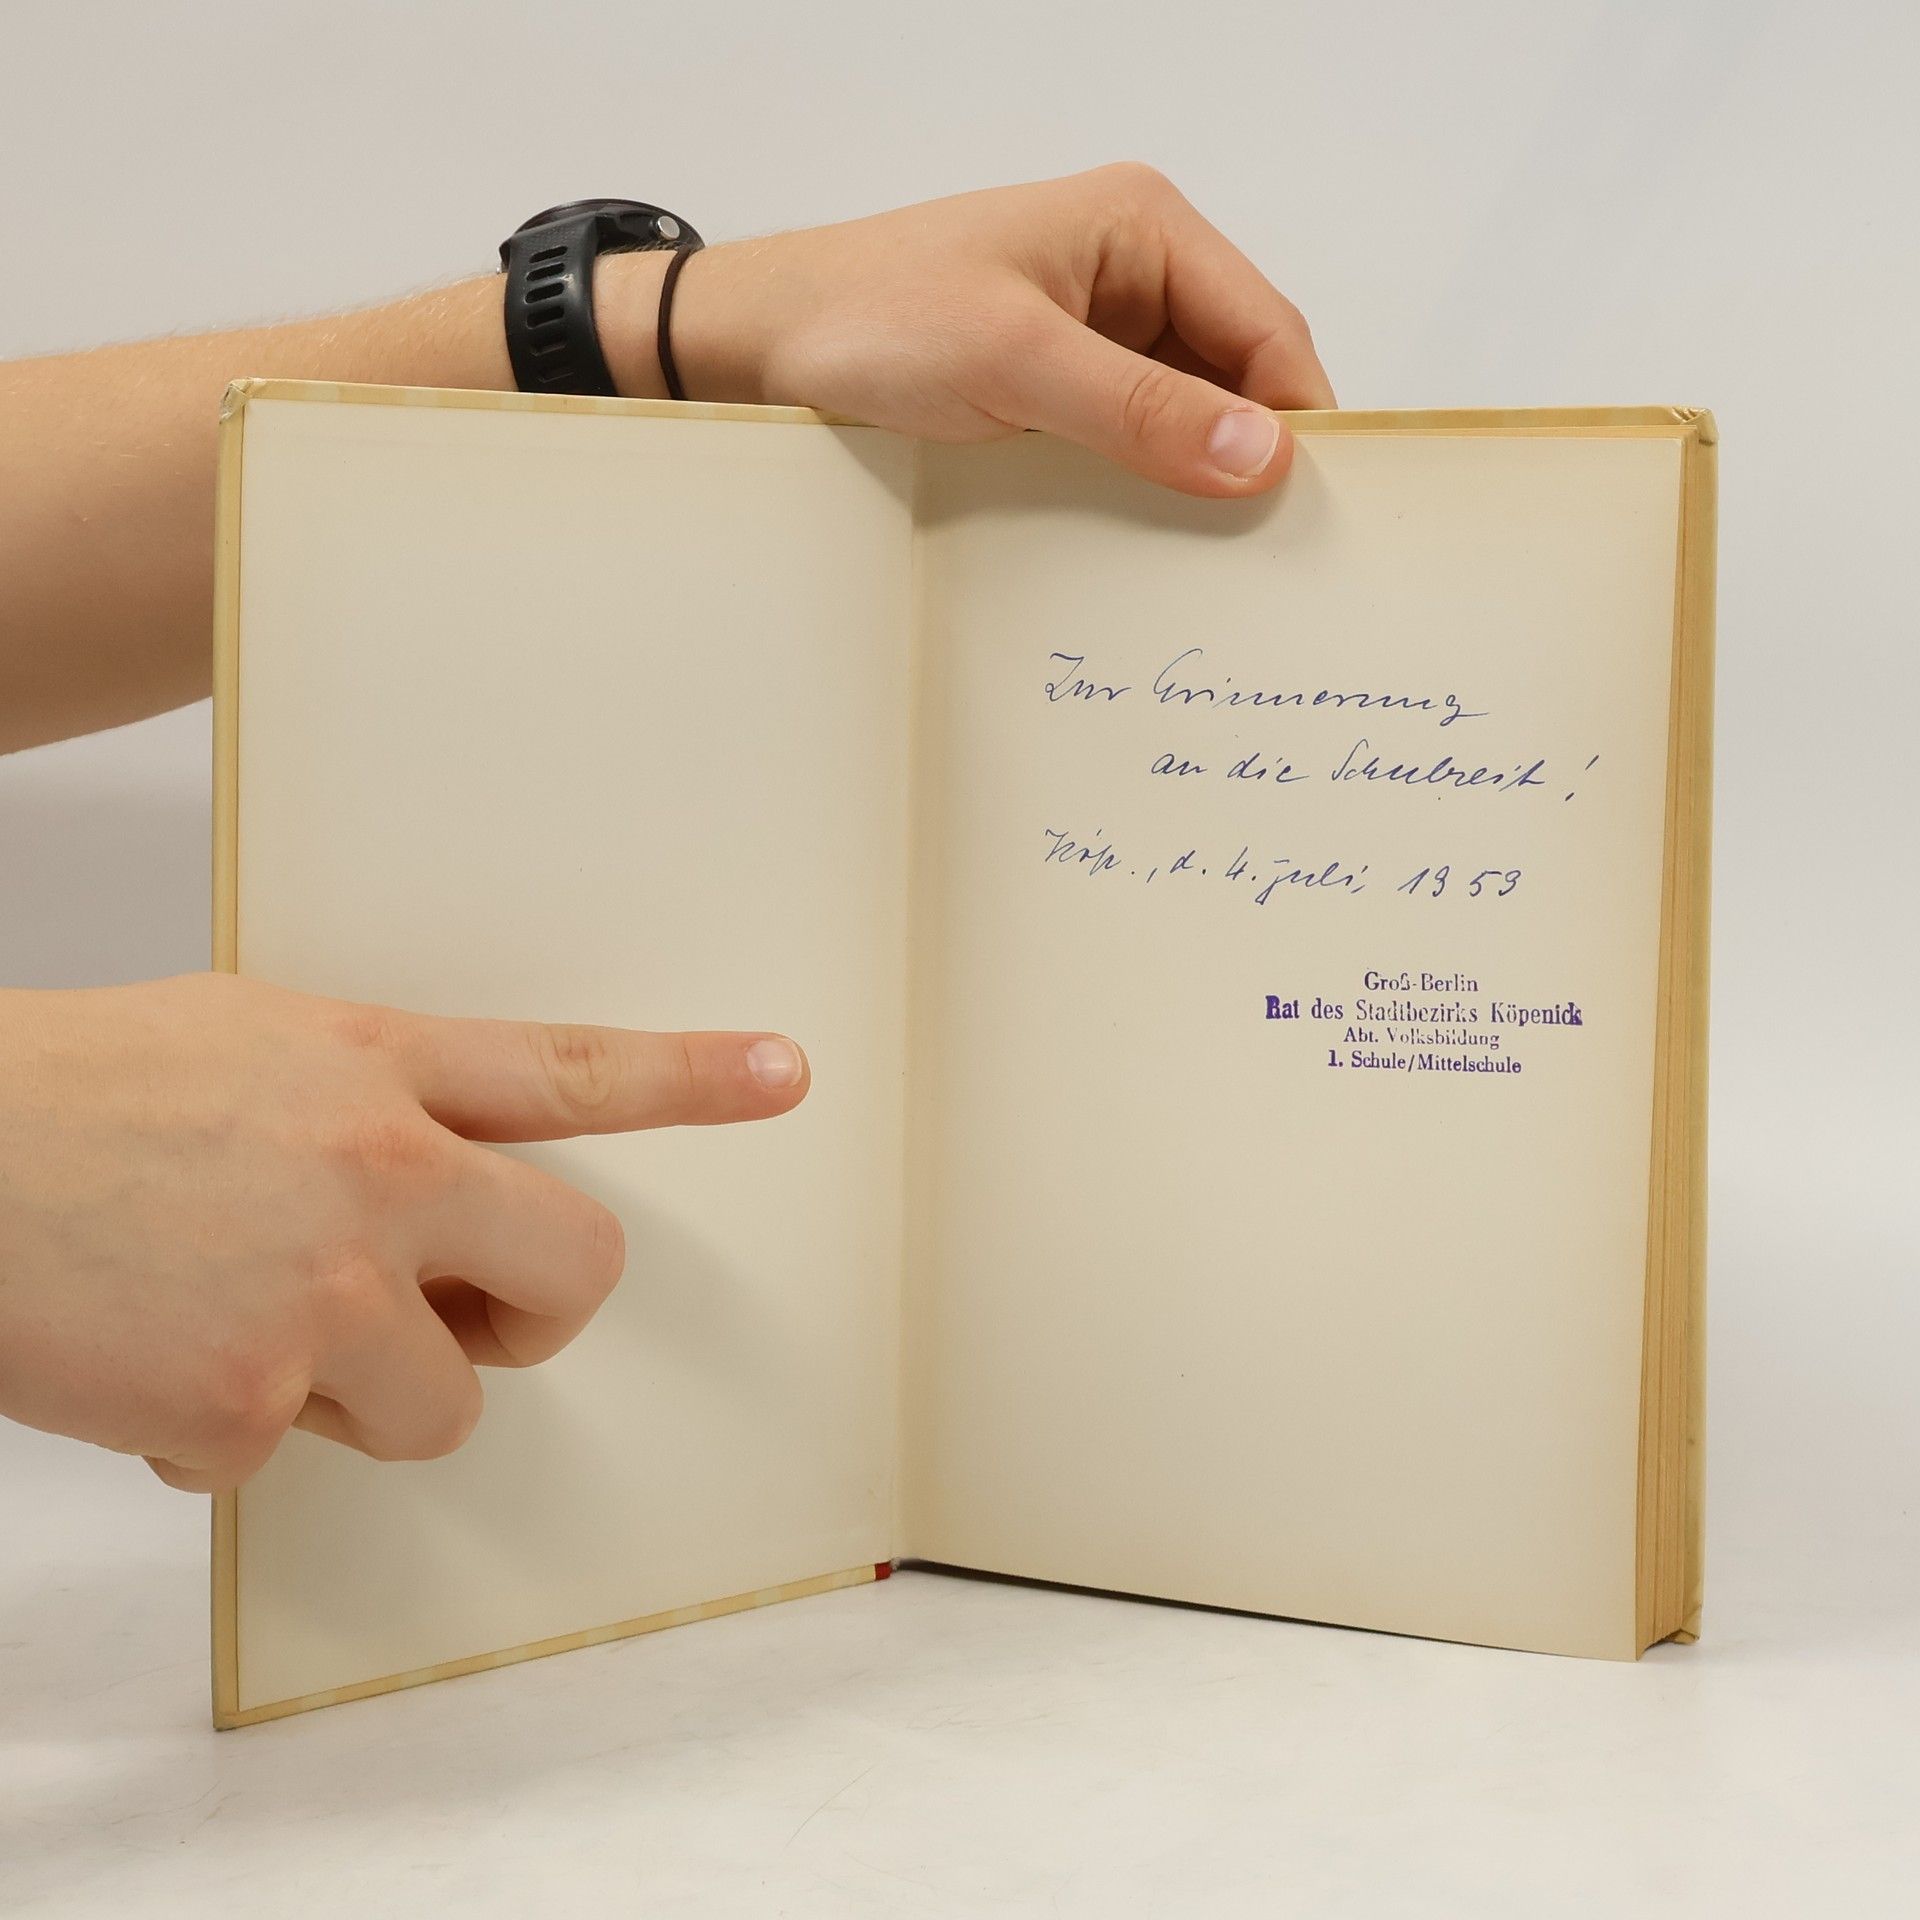 Zur Erinnerung
an die Schulzeit!
Köp., d. 4. Juli, 1959
Groß-Berlin
Rat des Stadtbezirks Köpenick
Abt. Volksbildung
1. Schule/Mittelschule